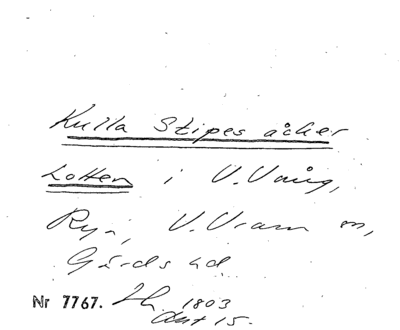 Kulla Stipes åker
Lotten i V. Vång,
Ry, V. Vram sn,
Gärds hd
Nr 7767. 1803
Akt 15.